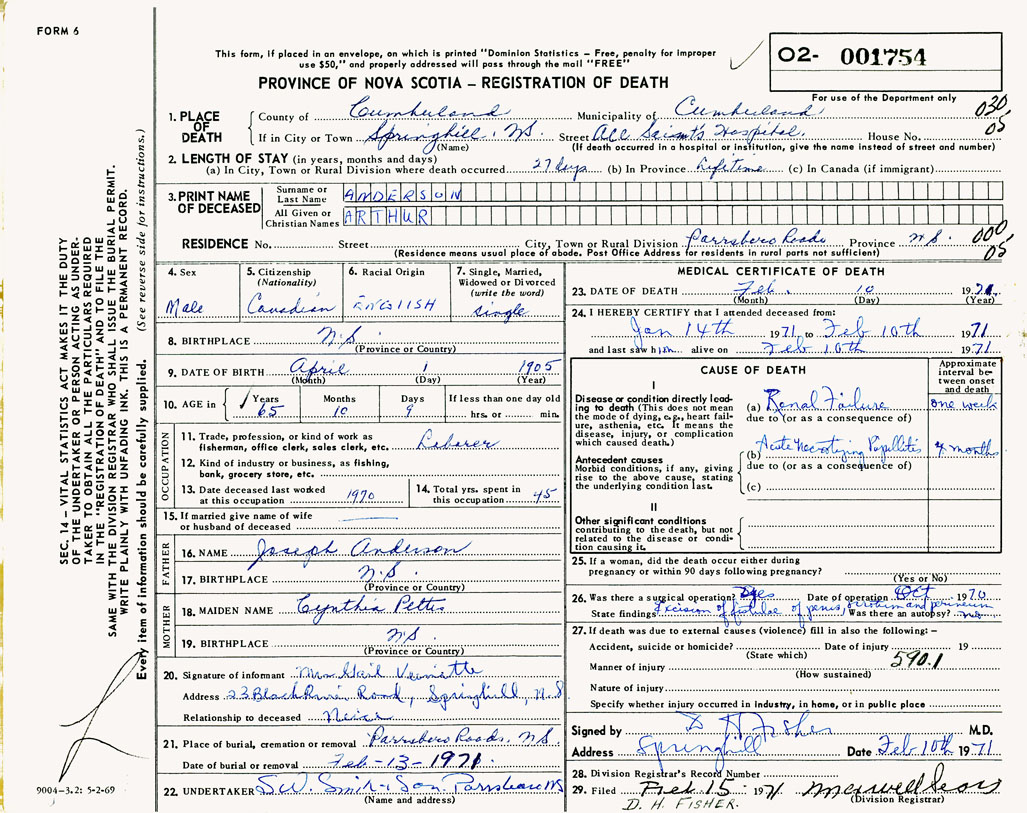 FORM 6
This form, if placed in an envelope, on which is printed "Dominion Statistics – Free, penalty for improper
use $50," and properly addressed will pass through the mail "FREE"
PROVINCE OF NOVA SCOTIA – REGISTRATION OF DEATH
02- 001754
For use of the Department only
030
05
1. PLACE OF DEATH
County of Cumberland Municipality of Cumberland
If in City or Town Springhill, N.S. Street All Saints Hospital, House No.
(Name) (If death occurred in a hospital or institution, give the name instead of street and number)
2. LENGTH OF STAY (in years, months and days)
(a) In City, Town or Rural Division where death occurred 27 days (b) In Province Lifetime (c) In Canada (if immigrant)
3. PRINT NAME OF DECEASED
Surname or Last Name ANDERSON
All Given or Christian Names ARTHUR
RESIDENCE No. Street City, Town or Rural Division Parrsboro Roads Province N.S. 000
(Residence means usual place of abode. Post Office Address for residents in rural parts not sufficient) 05
4. Sex
Male
5. Citizenship
(Nationality)
Canadian
6. Racial Origin
ENGLISH
7. Single, Married,
Widowed or Divorced
(write the word)
Single
8. BIRTHPLACE N.S.
(Province or Country)
9. DATE OF BIRTH April 1 1905
(Month) (Day) (Year)
10. AGE in
Years Months Days If less than one day old
65 10 9 hrs. or min.
OCCUPATION
11. Trade, profession, or kind of work as
fisherman, office clerk, sales clerk, etc. Laborer
12. Kind of industry or business, as fishing,
bank, grocery store, etc.
13. Date deceased last worked
at this occupation 1970
14. Total yrs. spent in
this occupation 45
15. If married give name of wife
or husband of deceased
FATHER
16. NAME Joseph Anderson
17. BIRTHPLACE N.S.
(Province or Country)
MOTHER
18. MAIDEN NAME Cynthia Pettis
19. BIRTHPLACE N.S.
(Province or Country)
20. Signature of informant Mrs Gail
Address 23 Black River Road, Springhill, N.S
Relationship to deceased Neice
21. Place of burial, cremation or removal Parrsboro Roads. N.S.
Date of burial or removal Feb-13-1971.
22. UNDERTAKER S.W. Smith & Son. Parrsboro NS
(Name and address)
MEDICAL CERTIFICATE OF DEATH
23. DATE OF DEATH Feb. 10 1971
(Month) (Day) (Year)
24. I HEREBY CERTIFY that I attended deceased from:
Jan 14th 1971 to Feb 10th 1971
and last saw him alive on Feb 10th 1971
CAUSE OF DEATH
Approximate
interval be-
tween onset
and death
I
Disease or condition directly lead-
ing to death (This does not
mean the mode of dying, e.g., heart fail-
ure, asthenia, etc. It means the
disease, injury, or complication
which caused death.)
(a) Renal Failure one week
due to (or as a consequence of)
Antecedent causes
Morbid conditions, if any, giving
rise to the above cause, stating
the underlying condition last.
(b) Acute Necrotizing Papillitis 4 months
due to (or as a consequence of)
(c)
II
Other significant conditions
contributing to the death, but not
related to the disease or condi-
tion causing it.
25. If a woman, did the death occur either during
pregnancy or within 90 days following pregnancy?
(Yes or No)
26. Was there a surgical operation? Yes Date of operation Oct 1970
State findings Excision of of penis, scrotum and perineum Was there an autopsy? no
27. If death was due to external causes (violence) fill in also the following: –
Accident, suicide or homicide? Date of injury 19
(State which)
590.1
Manner of injury
(How sustained)
Nature of injury
Specify whether injury occurred in industry, in home, or in public place
Signed by D H Fisher M.D.
Address Springhill Date Feb 10th 1971
28. Division Registrar's Record Number
29. Filed Feb 15 1971 Maxwell
(Division Registrar)
D. H. FISHER.
SEC. 14 – VITAL STATISTICS ACT MAKES IT THE DUTY
OF THE UNDERTAKER OR PERSON ACTING AS UNDER-
TAKER TO OBTAIN ALL THE PARTICULARS REQUIRED
IN THE "REGISTRATION OF DEATH" AND TO FILE THE
SAME WITH THE DIVISION REGISTRAR WHO SHALL ISSUE THE BURIAL PERMIT.
WRITE PLAINLY WITH UNFADING INK. THIS IS A PERMANENT RECORD.
Every item of information should be carefully supplied. (See reverse side for instructions.)
9004-3.2: 5-2-69